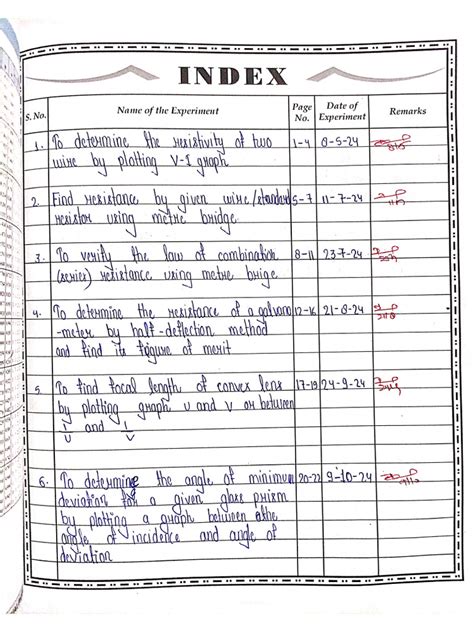 INDEX
S. No. Name of the Experiment Page No. Date of Experiment Remarks
1. To determine the resistivity of two 1-4 8-5-24
wire by plotting V-I graph
2. Find resistance by given wire/standard 5-7 11-7-24
resistor using metre bridge
3. To verify the law of combination 8-11 23-7-24
(series) resistance using metre brige
4. To determine the resistance of a galvano 12-16 21-8-24
-meter by half-deflection method
and find its figure of merit
5. To find focal length of convex lens 17-19 24-9-24
by plotting graph u and v or between
1/u and 1/v
6. To determine the angle of minimum 20-22 9-10-24
deviation for a given glass prism
by plotting a graph between the
angle of incidence and angle of
deviation